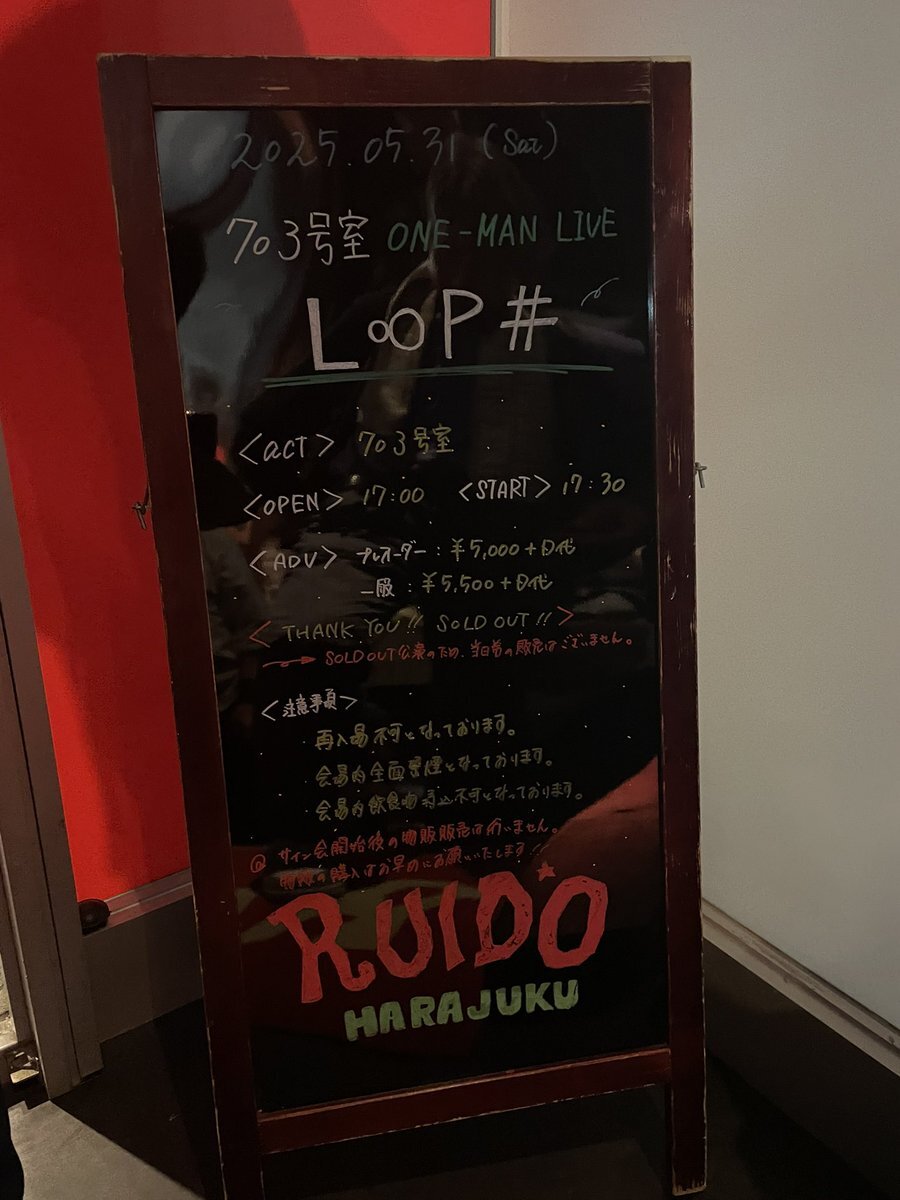 2025.05.31 (Sat)
703号室 ONE-MAN LIVE
L∞P #
<act> 703号室
<OPEN> 17:00 <START> 17:30
<ADV> プレオーダー : ¥5,000+D代
一般 : ¥5,500+D代
< THANK YOU!! SOLD OUT!! >
→ SOLD OUT公演のため、当日券の販売はございません。
<注意事項>
再入場不可となっております。
会場内全面禁煙となっております。
会場内飲食物持込不可となっております。
@ サイン会開始後の物販販売は行いません。
物販の購入はお早めにお願いいたします!
RUIDO
HARAJUKU